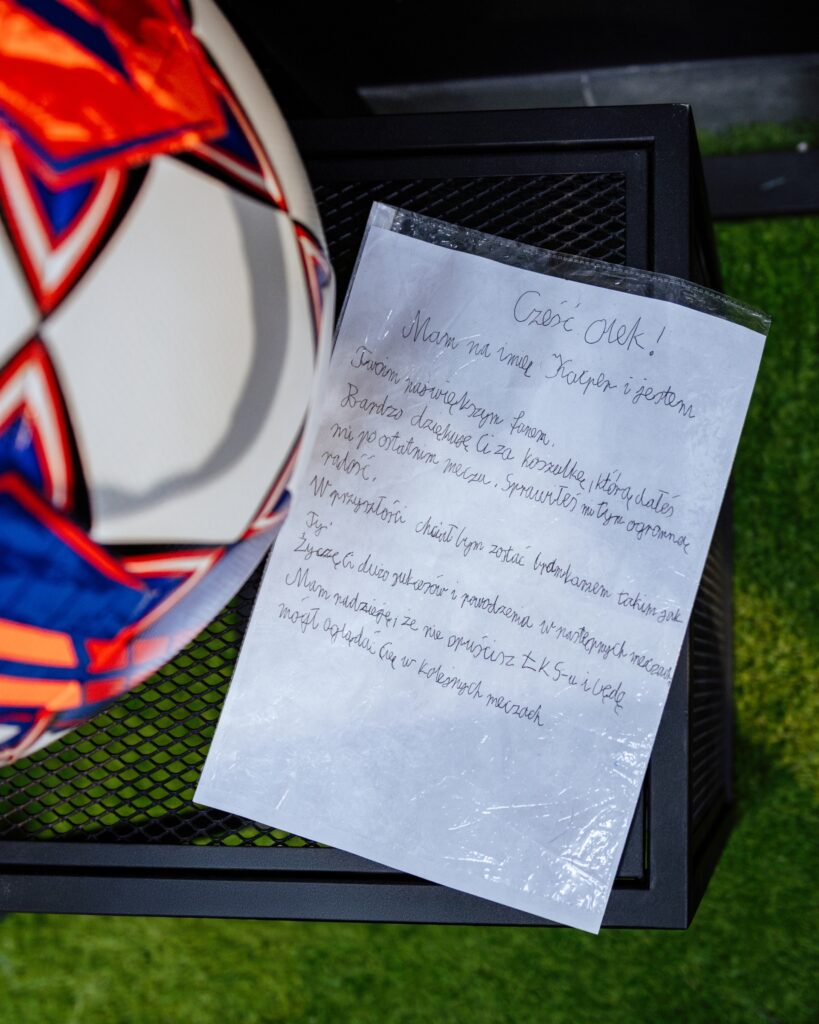 Cześć Olek!
Mam na imię Kacper i jestem
Twoim największym fanem.
Bardzo dziękuję Ci za koszulkę, którą dałeś
mi po ostatnim meczu. Sprawiłeś mi tym ogromną
radość.
W przyszłości chciałbym zostać bramkarzem takim jak
Ty.
Życzę Ci dużo sukcesów i powodzenia w następnych meczach
Mam nadzieję, że nie opuścisz ŁKS-u i będę
mógł oglądać Cię w kolejnych meczach